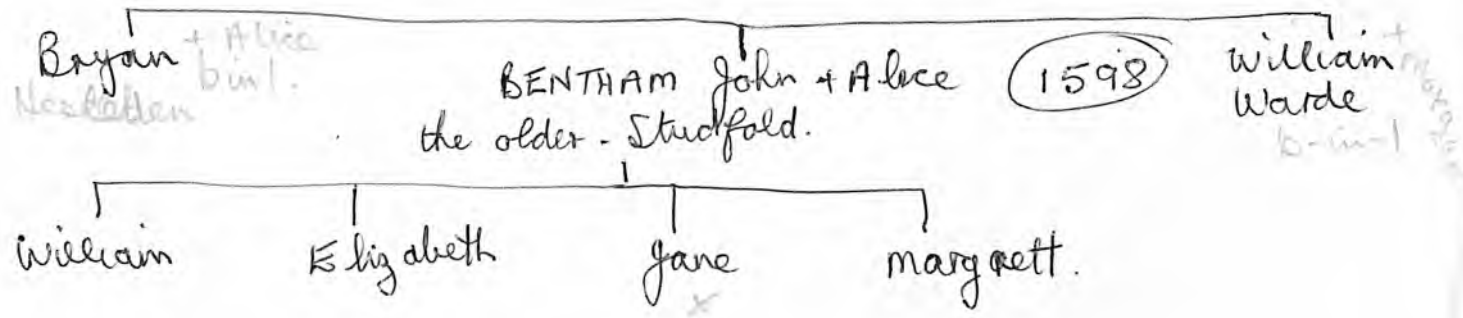 Bryan + Alice
b in l.
BENTHAM John + Alice 1598
the older - Studfold.
William
Warde
b-in-l
William Elizabeth Jane Margrett.
x